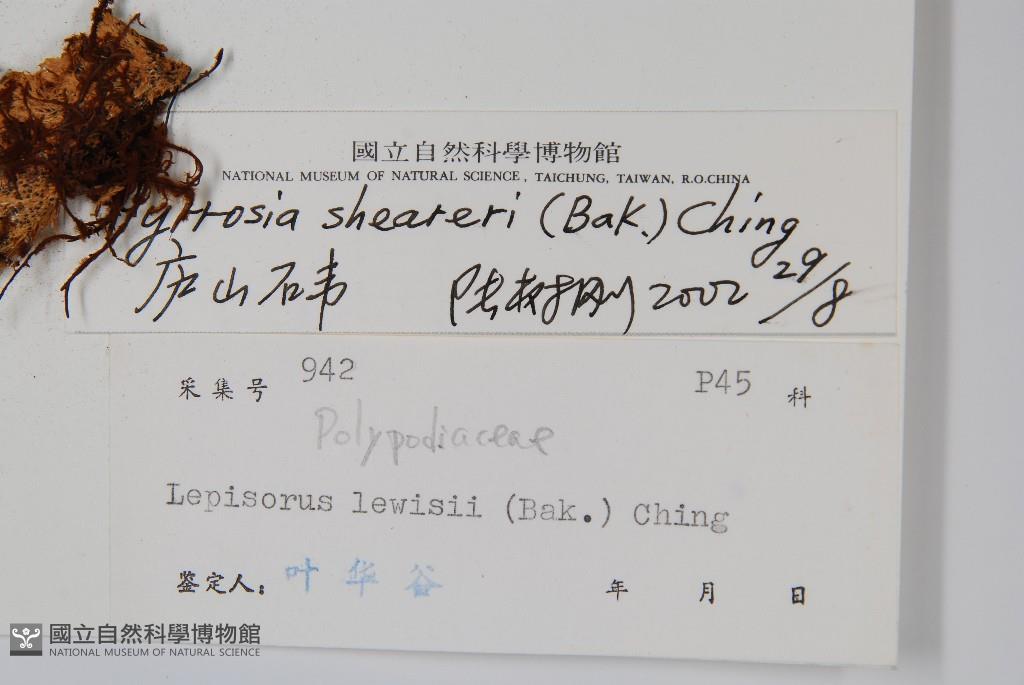 國立自然科學博物館
NATIONAL MUSEUM OF NATURAL SCIENCE, TAICHUNG, TAIWAN, R.O.CHINA
Pyrrosia sheareri (Bak.) Ching
庐山石韦 陆树刚 2002 29/8
采集号 942 P45 科
Polypodiaceae
Lepisorus lewisii (Bak.) Ching
鉴定人: 叶华谷 年 月 日
國立自然科學博物館
NATIONAL MUSEUM OF NATURAL SCIENCE